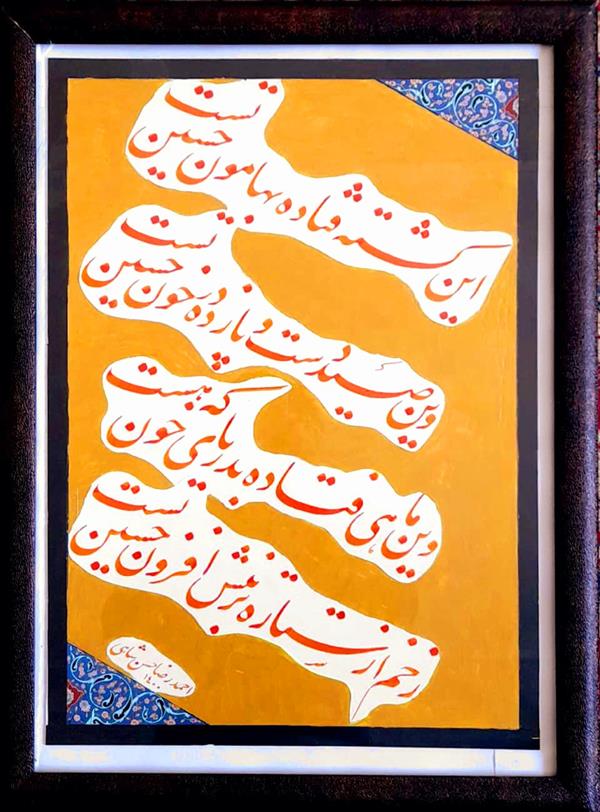 این کشته فتاده بهامون حسین تست
وین صید دست و پا زده در خون حسین تست
وین ماهی فتاده بدریای خون که هست
زخم از ستاره بر تنش افزون حسین تست
احمدرضا حسن شاهی
۱۴۰۰